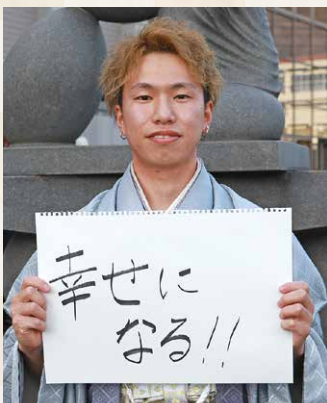 幸せに
なる!!